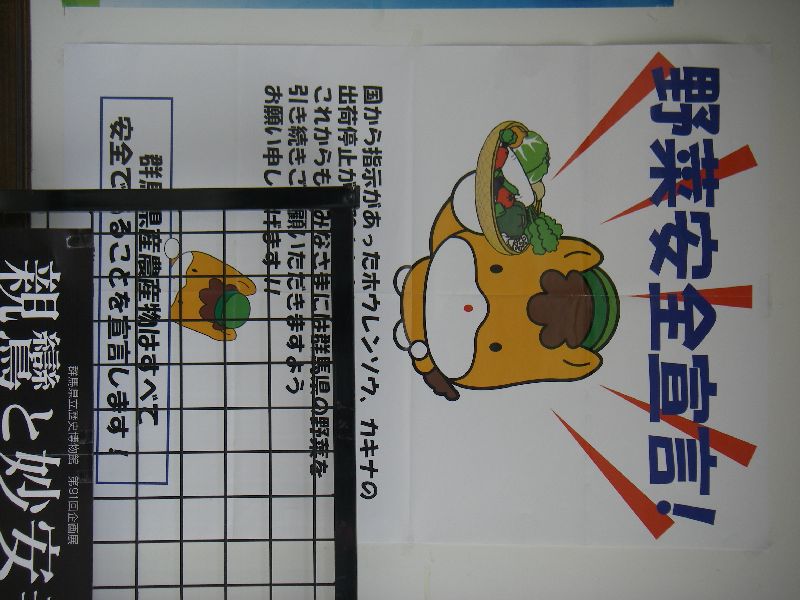 野菜安全宣言!
国から指示があったホウレンソウ、カキナの
出荷停止が
これからも みなさまには群馬県の野菜を
引き続きご愛願いただきますよう
お願い申し上げます!!
群馬県産農産物はすべて
安全であることを宣言します!
群馬県立歴史博物館 第91回企画展
親鸞と妙安